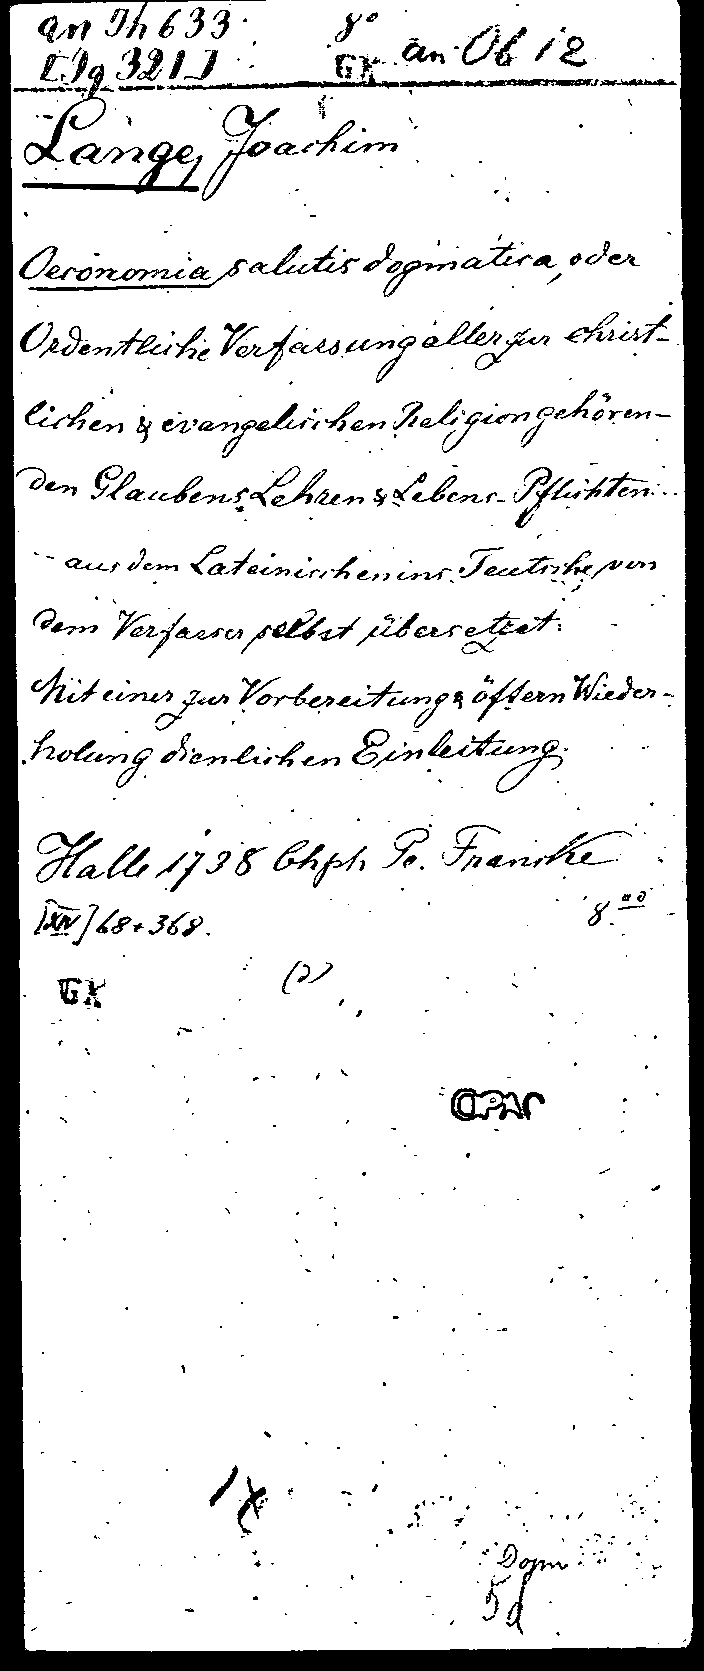 an Th 633. 8° an Ob 12
[Ig 321] GK
Lange, Joachim
Oeconomia salutis dogmatica, oder
Ordentliche Verfassung aller zur christ-
lichen & evangelischen Religion gehören-
den Glaubens Lehren & Lebens-Pflichten...
-- aus dem Lateinischen ins Teutsche von
dem Verfasser selbst übersetzet.
Mit einer zur Vorbereitung & öftern Wieder-
holung dienlichen Einleitung.
Halle 1738 Chph Pe. Francke
[XIV] 68 + 368. 8.
GK (2)
OPAC
Dogm
5d